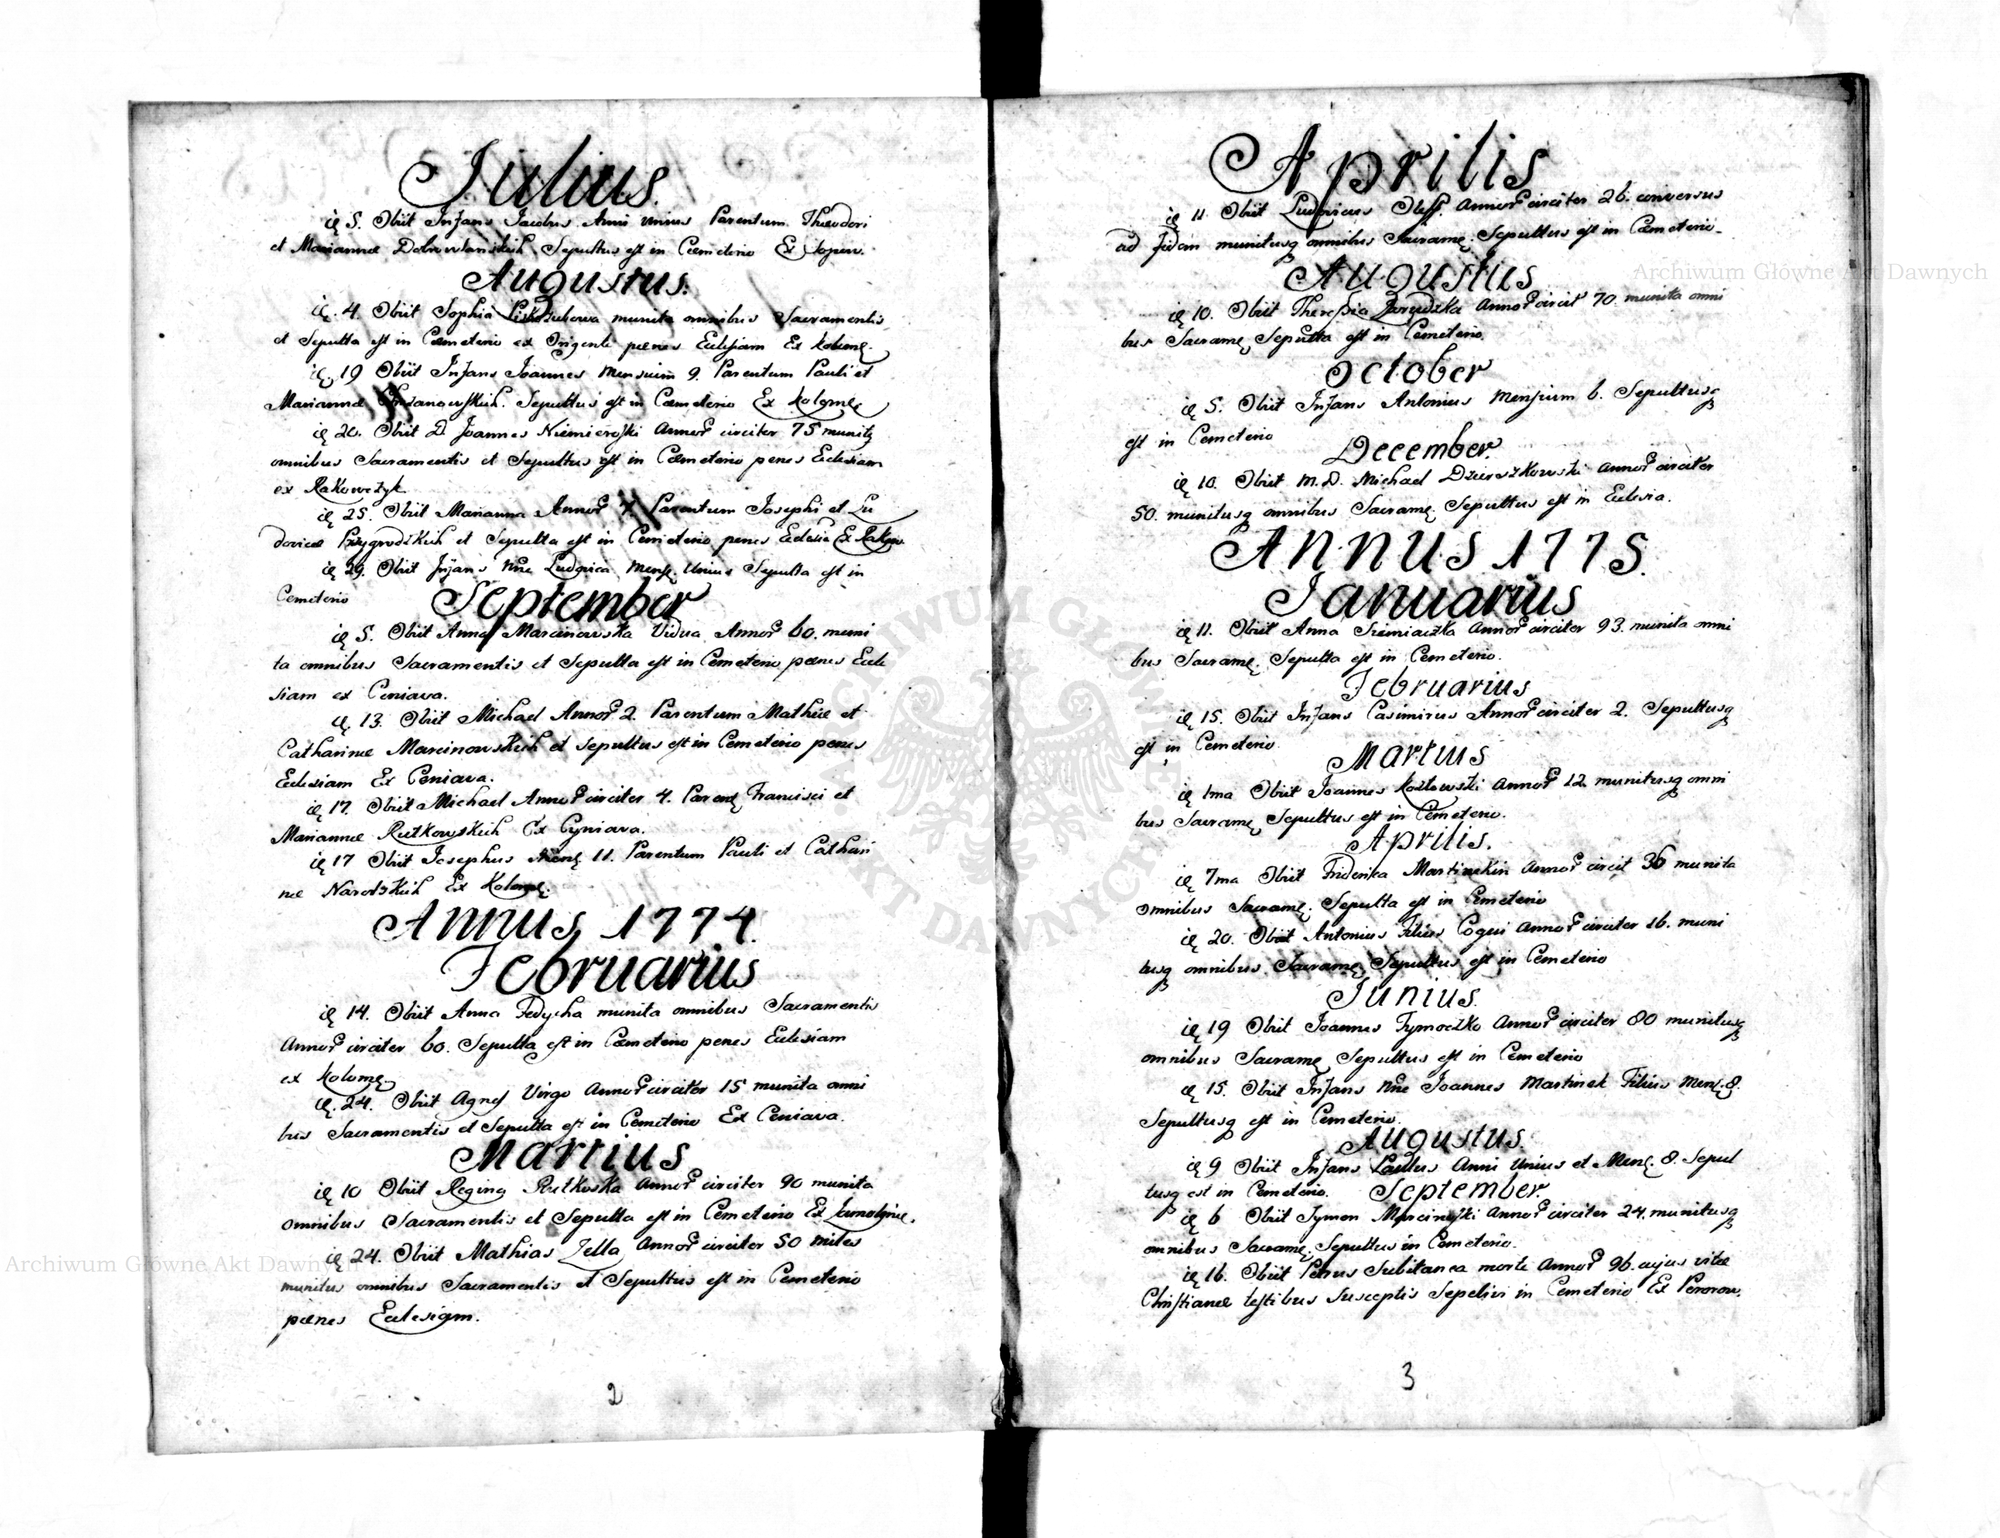 Julius.
ie 5. Obiit Infans Jacobus Anni unius Parentum Theodori
et Mariannae Sepultus est in Cæmeterio Ex
Augustus.
ie. 4. Obiit Sophia munita omnibus Sacramentis
et Sepulta est in Cæmeterio ex penes Eclesiam Ex kolomę.
ię. 19 Obiit Infans Joannes Mensium 9. Parentum Pauli et
Mariannæ Sepultus est in Cæmeterio Ex kolomę
ię 20. Obiit D. Joannes Niemieroski Annor circiter 75 munitg
omnibus Sacramentis et Sepultus est in Cæmeterio penes Eclesiam
ex Rakowczyk
ię 25. Obiit Marianna Annor Parentum Josephi et Lu
dovicæ Przygrodzkich et Sepulta est in Cemeterio penes Eclesia Ex Rakow
ię 29. Obiit Infans Nne Ludovica Mens. Unius Sepulta est in
Cemeterio
September
ię 5. Obiit Anna Marcinowska Vidua Annor 60. muni
ta omnibus Sacramentis et Sepulta est in Cemeterio pænes Ecle
siam ex Ceniava.
ię 13. Obiit Michael Annor 2. Parentum Mathiæ et
Catharinæ Marcinowskich et Sepultus est in Cemeterio penes
Eclesiam Ex Ceniava.
ię 17. Obiit Michael Annor circiter 4. Parent Francisci et
Mariannæ Rutkowskich Ex Cyniava.
ię 17 Obiit Josephus Menę 11. Parentum Pauli et Cathari
næ Narolskich Ex Kolomę.
Annus 1774.
Februarius
ię 14. Obiit Anna Fedycha munita omnibus Sacramentis
Annor circiter 60. Sepulta est in Cæmeterio penes Eclesiam
ex kolomę.
ię. 24. Obiit Agnes Virgo Annor circiter 15 munita omni
bus Sacramentis et Sepulta est in Cemeterio Ex Ceniava.
Martius
ię 10 Obiit Regina Rutkoska Annor circiter 90 munita
omnibus Sacramentis et Sepulta est in Cemeterio Ex
ię 24. Obiit Mathias Zella Annor circiter 50 miles
munitus omnibus Sacramentis et Sepultus est in Cemeterio
pænes Eclesiam.
2
Aprilis
ię 11. Obiit Ludovicus Annor circiter 26. conversus
ad fidem munitusq omnibus Sacramę. Sepultus est in Cæmeterio
Augustus
ię 10. Obiit Theresia Annor circit 70. munita omni
bus Sacramę. Sepulta est in Cemeterio.
October
ię 5. Obiit Infans Antonius Mensium 6. Sepultusq
est in Cemeterio
December.
ię 10. Obiit M.D. Michael Dzierzkowski Annor circiter
50. munitusq omnibus Sacramę. Sepultus est in Eclesia.
ANNUS 1775.
Januarius
ię 11. Obiit Anna Annor circiter 93. munita omni
bus Sacramę. Sepulta est in Cemeterio.
Februarius
ię 15. Obiit Infans Casimirus Annor circiter 2. Sepultusq
est in Cemeterio.
Martius
ię 1ma Obiit Joannes Kozlowski Annor 12. munitusq omni
bus Sacramę Sepultus est in Cemeterio.
Aprilis.
ię 7ma Obiit Friderika Annor circit 36 munita
omnibus Sacramę. Sepulta est in Cemeterio
ię 20. Obiit Antonius Filius Coqui Annor circiter 16. muni
tusq omnibus Sacramę Sepultus est in Cemeterio
Junius.
ię 19 Obiit Joannes Tymoczko Annor circiter 80 munitusq
omnibus Sacramę Sepultus est in Cemeterio
ię 15. Obiit Infans Nne Joannes Martinek Filius Menę. 8.
Sepultusq est in Cemeterio.
Augustus.
ię 9 Obiit Infans Paulus Anni unius et Menę. 8. Sepul
tusq est in Cemeterio.
September.
ię 6 Obiit Symon Marcinoski Annor circiter 24. munitusq
omnibus Sacramę. Sepultus in Cemeterio.
ię 16. Obiit Petrus Subitanea morte Annor 96. cujus vitæ
Christianæ testibus susceptis Sepeliri in Cemeterio Ex
3
Archiwum Główne Akt Dawnych
Archiwum Główne Akt Dawnych
ARCHIWUM GŁÓWNE AKT DAWNYCH